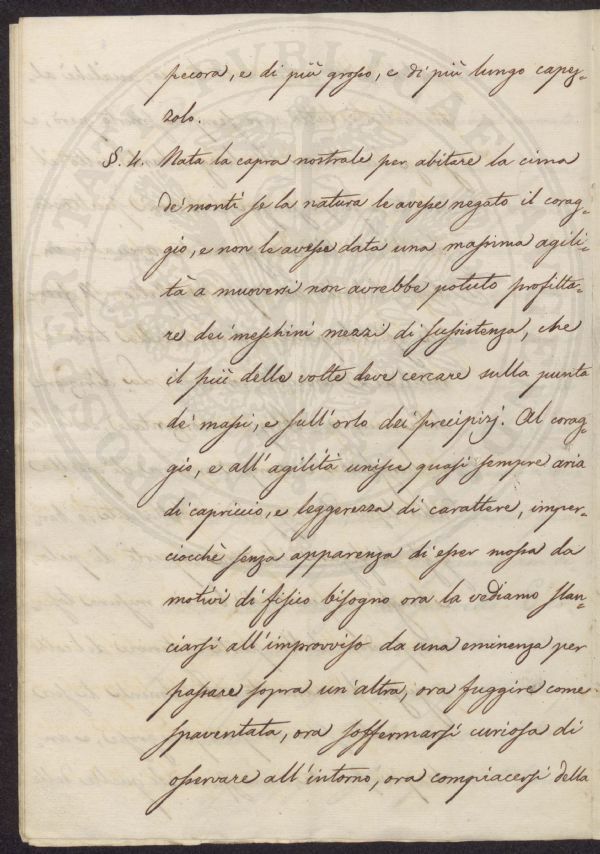 pecora, e di più grosso, e di più lungo capez-
zolo.
§. 4. Nata la capra nostrale per abitare la cima
de' monti se la natura le avesse negato il corag-
gio, e non le avesse data una massima agili-
tà a muoversi non avrebbe potuto profitta-
re dei meschini mezzi di sussistenza, che
il più delle volte deve cercare sulla punta
de' massi, e sull'orlo dei precipizj. Al corag-
gio, e all'agilità unisce quasi sempre aria
di capriccio, e leggerezza di carattere, imper-
ciocchè senza apparenza di esser mossa da
motivi di fisico bisogno ora la vediamo slan-
ciarsi all'improvviso da una eminenza per
passare sopra un'altra, ora fuggire come
spaventata, ora soffermarsi curiosa di
osservare all'intorno, ora compiacersi della